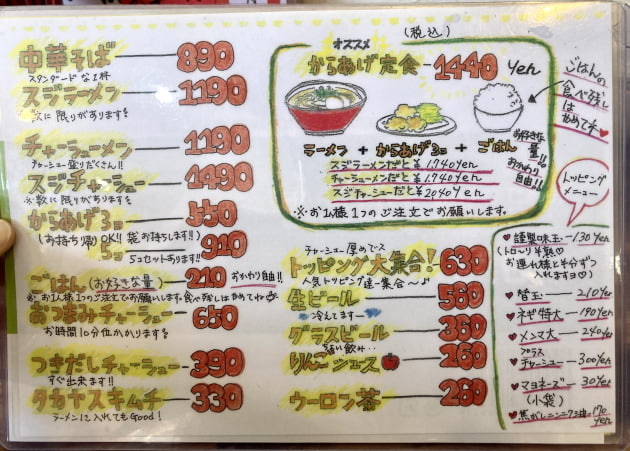 中華そば 890
スタンダードな1杯
スジラーメン 1190
※数に限りがあります
チャーシューメン 1190
チャーシュー盛りだくさん!!
スジチャーシュー 1490
※数に限りがあります
からあげ3コ 550
(お持ち帰りOK!! 袋お持ちします!!)
5コ 910
5コセットあります!!
ごはん(お好きな量) 210 おかわり自由!!
※お1人様1つのご注文でお願いします。食べ残しはやめてね
おつまみチャーシュー 650
お時間10分位かかります
つきだしチャーシュー 390
すぐ出来ます!!
タカヤスキムチ 330
ラーメンに入れてもGood!
(税込)
オススメ
からあげ定食 1440 yen
ラーメン + からあげ3コ + ごはん
お好きな量!!
おかわり自由!!
スジラーメンだと ¥1,740yen
チャーシューメンだと ¥1,740yen
スジチャーシューだと ¥2040yen
※お1人様1つのご注文でお願いします。
ごはんの食べ残しはやめてネ♥
チャーシュー厚めで
トッピング大集合! 630
人気トッピング達一集合〜♪
生ビール 560
冷えてます
グラスビール 360
りんごジュース 260
ウーロン茶 260
トッピングメニュー
♥謹製味玉 130yen
(トロ〜リ半熟♡
お連れ様と半分ずつ
入れますヨ♡)
♥替玉 210yen
♥ネギ特大 190yen
♥メンマ大 240yen
♥プラスチャーシュー 300yen
♥マヨネーズ 30yen
(小袋)
♥焦がしニンニク油 170yen